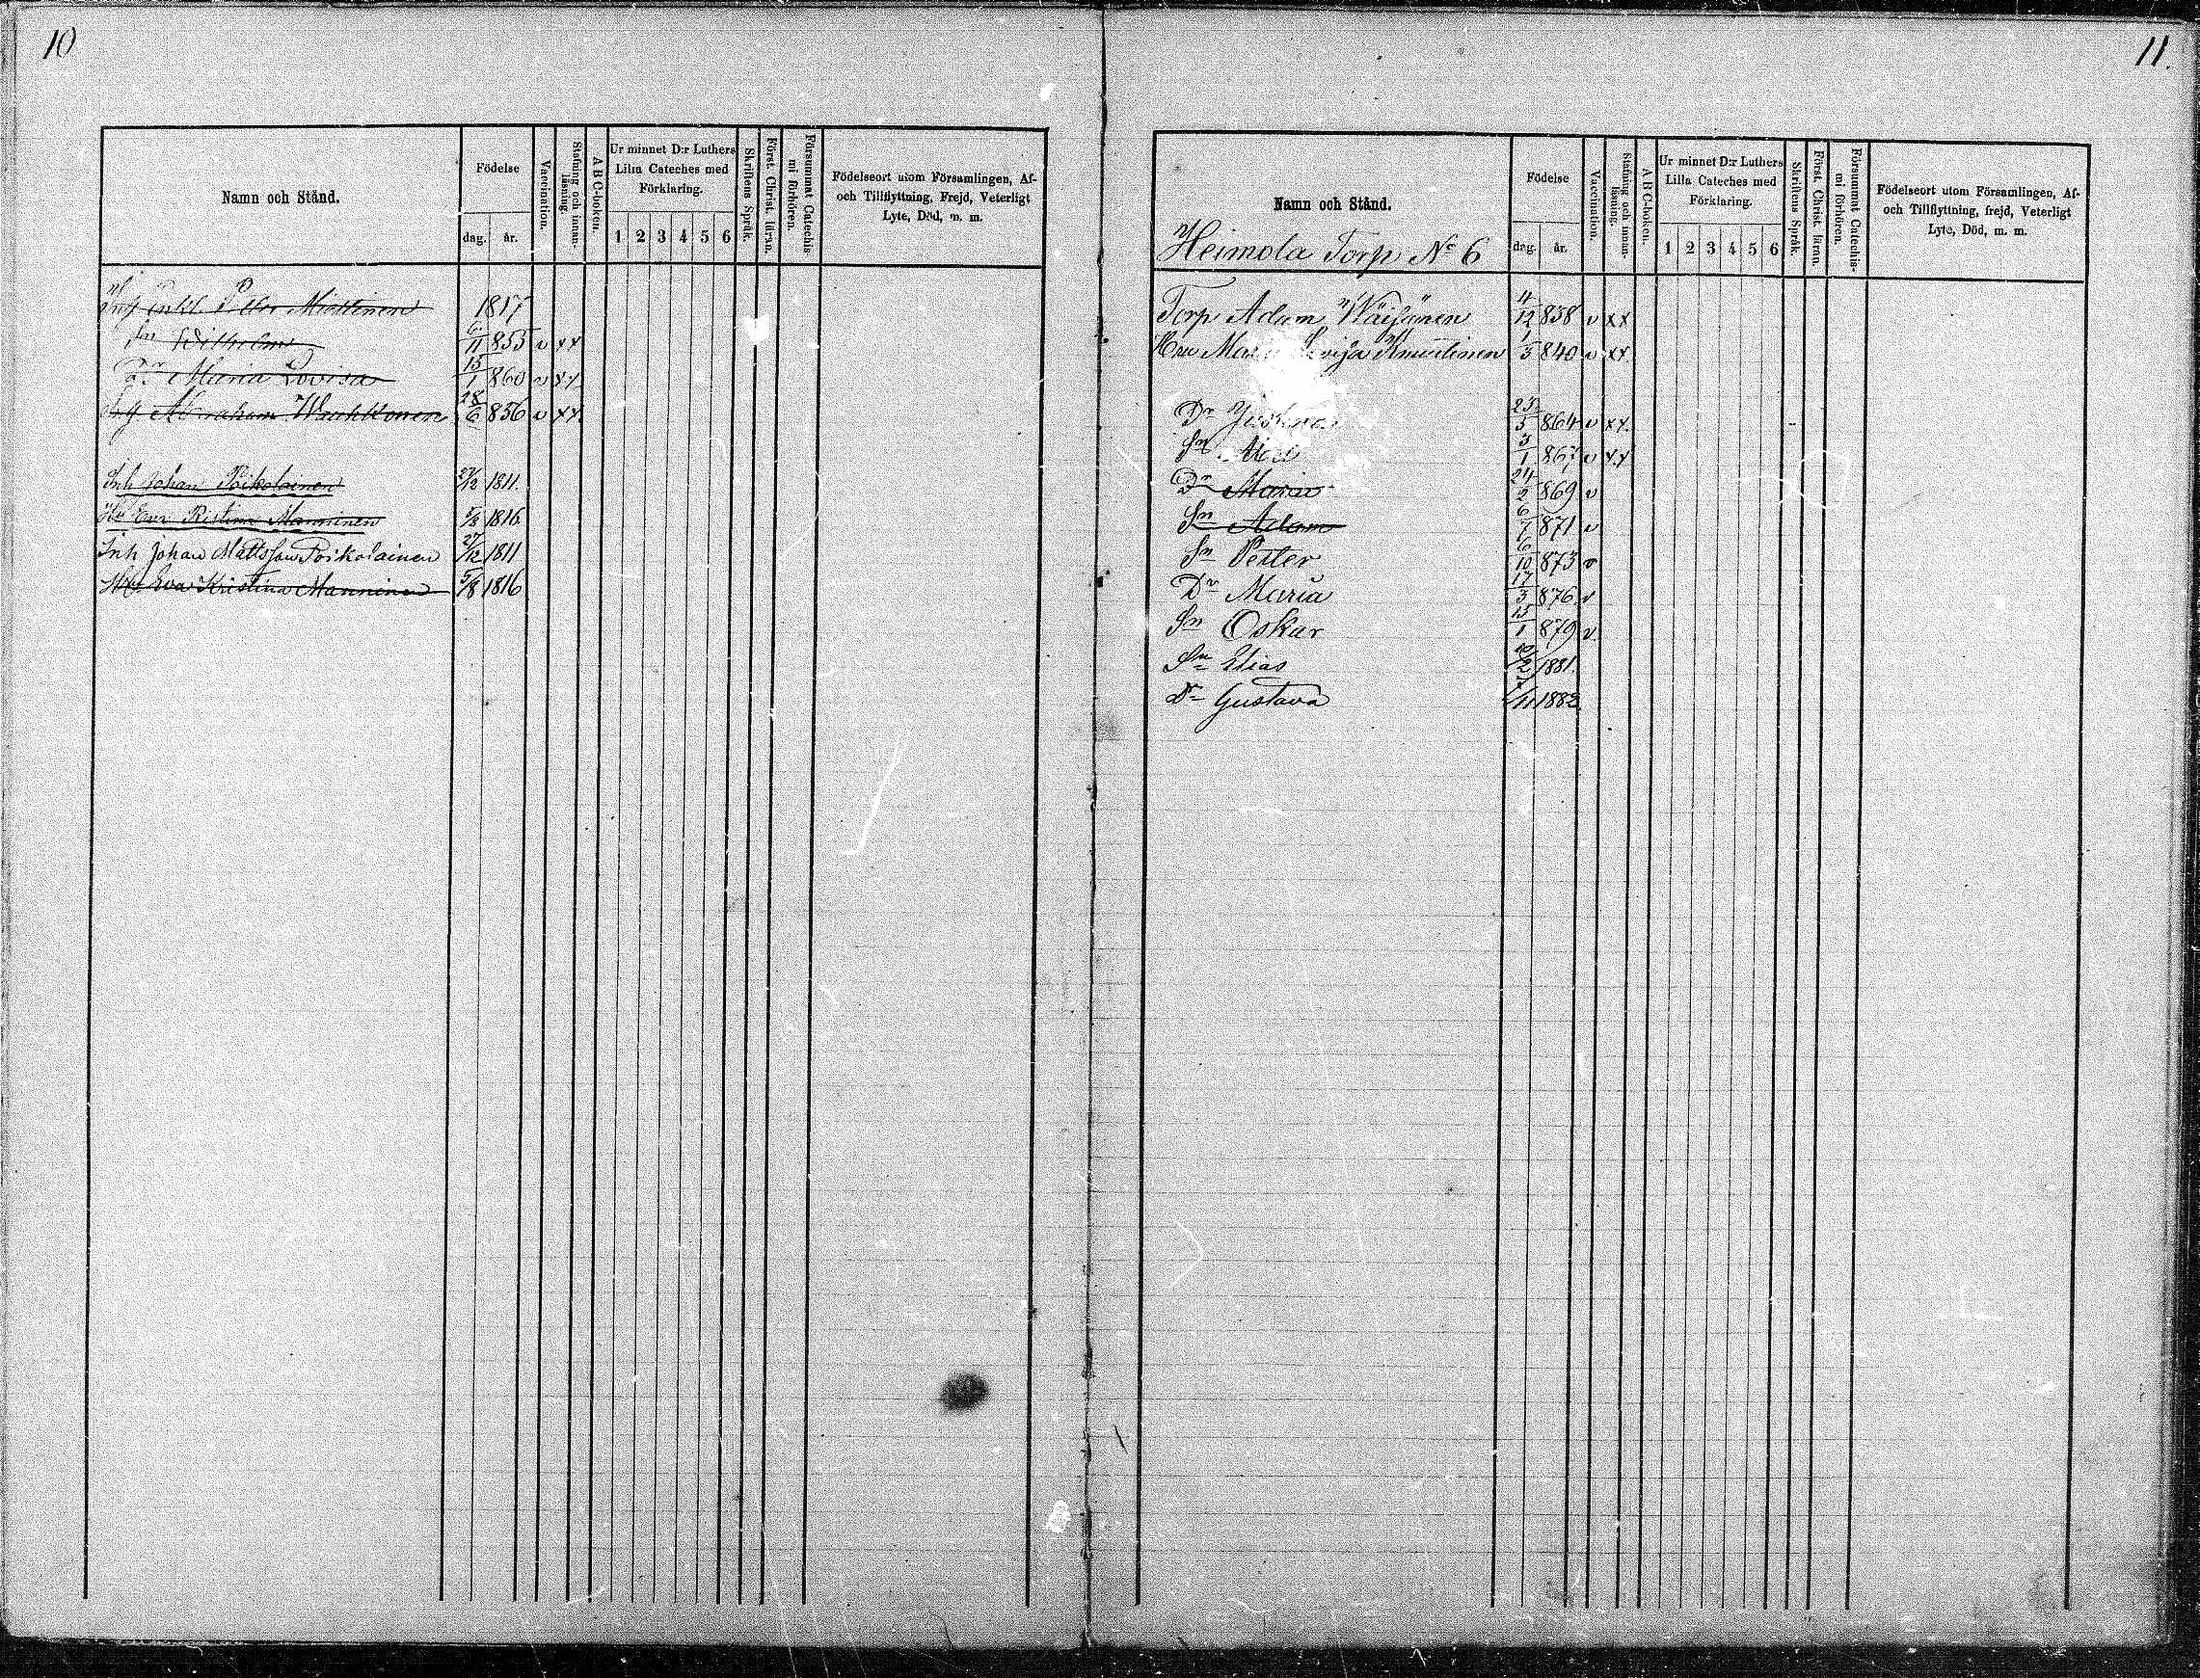 10
Namn och Stånd.
Födelse
dag. år.
Vaccination.
Stafning och innan-läsning.
A B C-boken.
Ur minnet D:r Luthers Lilla Cateches med Förklaring.
1 2 3 4 5 6
Skriftens Språk.
Först. Christ. läran.
Försummat Catechis-mi förhören.
Födelseort utom Församlingen, Af- och Tillflyttning, Frejd, Veterligt Lyte, Död, m. m.
Enkl. Petter Miettinen 1817
Sn Wilhelm 6/11 855 v xx
Dr Maria Lovisa 15/1 860 v xx
Abraham Wauhkonen 28/6 856 v xx
Inh Johan Poikolainen 27/12 1811.
Hu Eva Kristina Manninen 5/8 1816
Inh Johan Mattsson Poikolainen 27/12 1811
Hu Eva Kristina Manninen 5/8 1816
11.
Namn och Stånd.
Heimola Torp No 6
Födelse
dag. år.
Vaccination.
Stafning och innan-läsning.
A B C-boken.
Ur minnet D:r Luthers Lilla Cateches med Förklaring.
1 2 3 4 5 6
Skriftens Språk.
Först. Christ. läran.
Försummat Catechis-mi förhören.
Födelseort utom Församlingen, Af- och Tillflyttning, frejd, Veterligt Lyte, Död, m. m.
Torp Adam Wäisänen 4/12 838 v xx
Hu Maria Lovisa 1/5 840 v xx
Dr 23/5 864 v xx
Sn 3/1 867 v xx
Dr Maria 24/2 869 v
Sn Adam 6/7 871 v
Sn Petter 6/10 873 v
Dr Maria 17/3 876 v
Sn Oskar 15/1 879 v
Sn Elias 10/2 1881.
Dr Gustava /11 1882